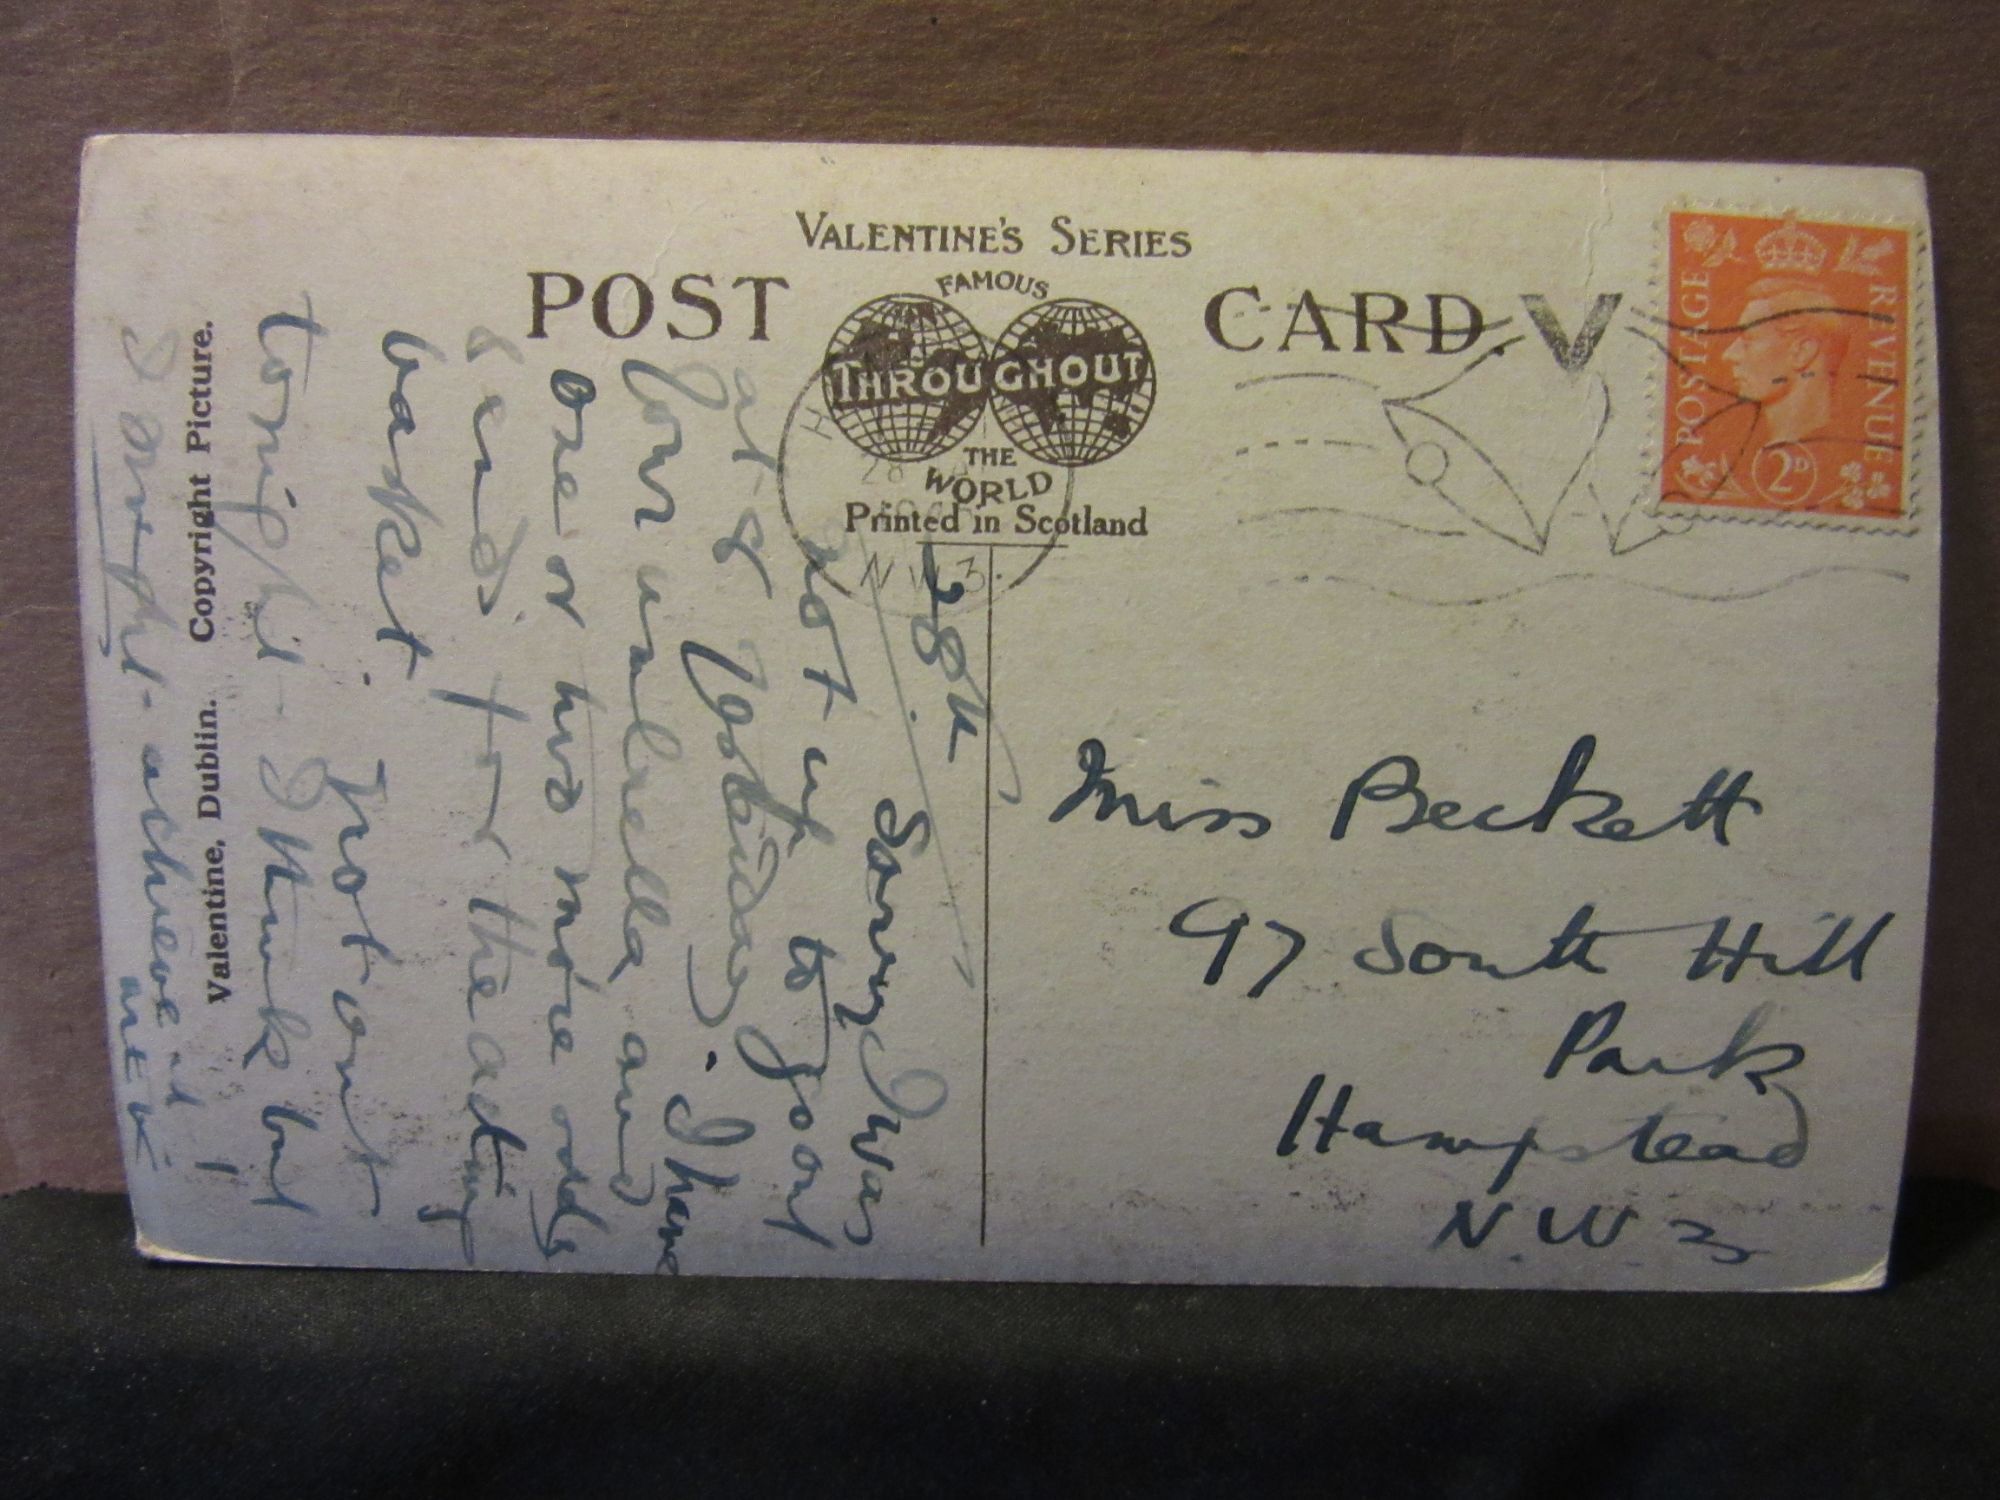 VALENTINE'S SERIES
POST CARD.
FAMOUS
THROUGHOUT
THE
WORLD
Printed in Scotland
POSTAGE REVENUE
2D
28
N.W.3.
Valentine, Dublin. Copyright Picture.
28th
Sorry I was
not up to going out
at 8 yesterday. I have
your umbrella and
one or two more odds
& ends for the acting
basket. Not out
tonight - I think but
I might achieve it
Miss Beckett
97 South Hill
Park
Hampstead
N.W.3